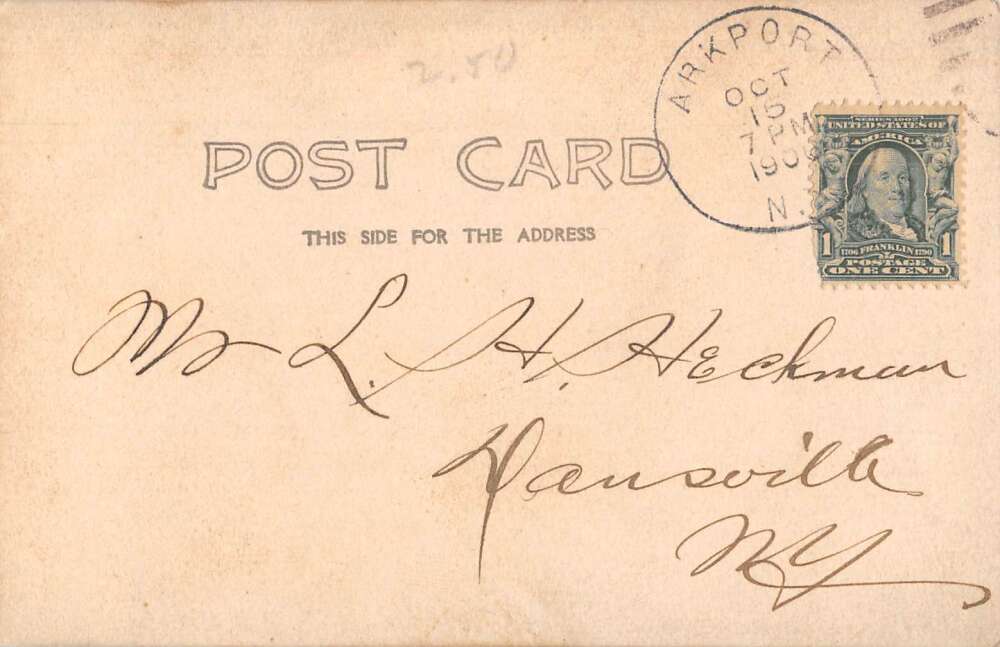 2.50
ARKPORT
OCT
15
7 PM
N.
SERIES 1902
UNITED STATES OF
AMERICA
1 1706 FRANKLIN 1790 1
POSTAGE
ONE CENT
POST CARD
THIS SIDE FOR THE ADDRESS
Mr L. H. Heckman
Dansville
NY